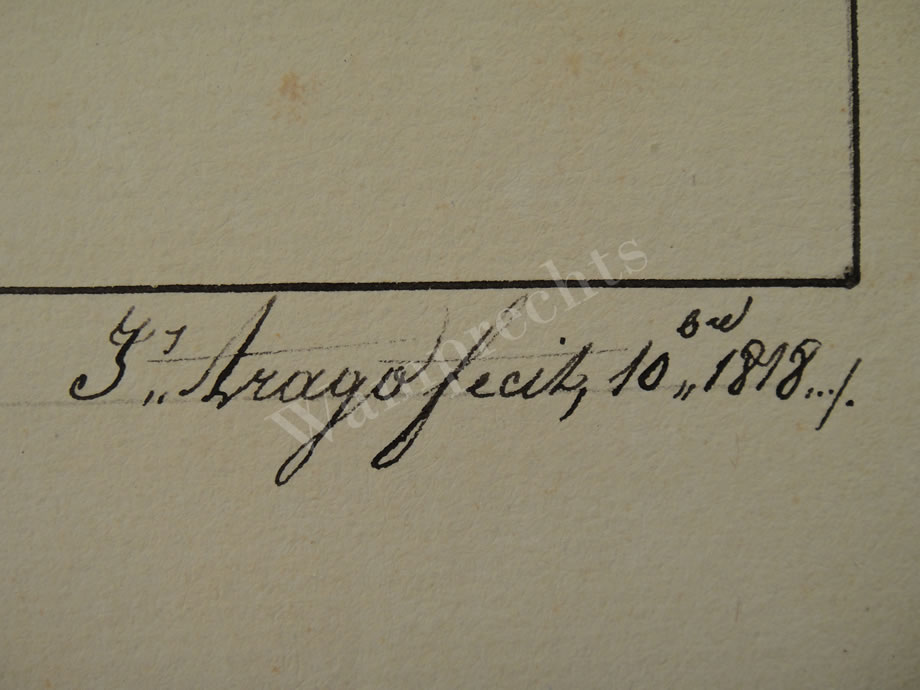 Js„ Arago fecit, 10bre„ 1818../.
Wamprechts